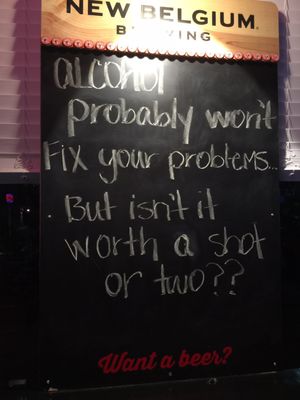 NEW BELGIUM
BREWING
alcohol
probably won't
Fix your problems...
But isn't it
worth a shot
or two??
Want a beer?